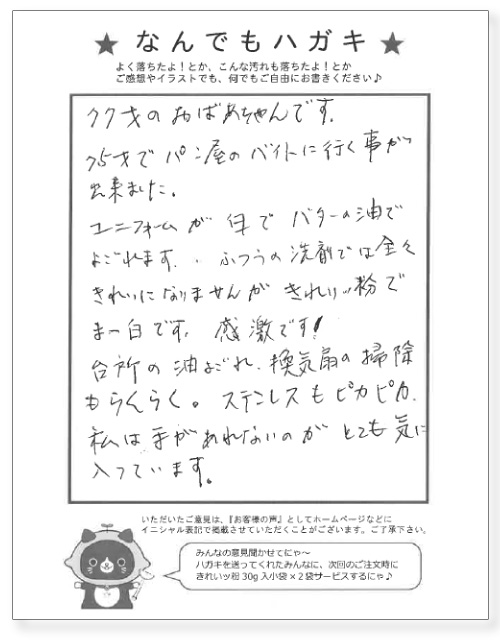 ★ なんでもハガキ ★
よく落ちたよ！とか、こんな汚れも落ちたよ！とか
ご感想やイラストでも、何でもご自由にお書きください♪
77才のおばあちゃんです。
75才でパン屋のバイトに行く事が
出来ました。
ユニフォームが 毎日 バターの油で
よごれます。ふつうの洗剤では全々
きれいになりませんが きれいッ粉で
まっ白です。感激です！
台所の油よごれ、換気扇の掃除
もらくらく。ステンレスもピカピカ。
私は手があれないのが とても気に
入っています。
いただいたご意見は、『お客様の声』としてホームページなどに
イニシャル表記で掲載させていただくことがございます。ご了承下さい。
みんなの意見聞かせてにゃ〜
ハガキを送ってくれたみんなに、次回のご注文時に
きれいッ粉 30g 入小袋 × 2 袋サービスするにゃ♪